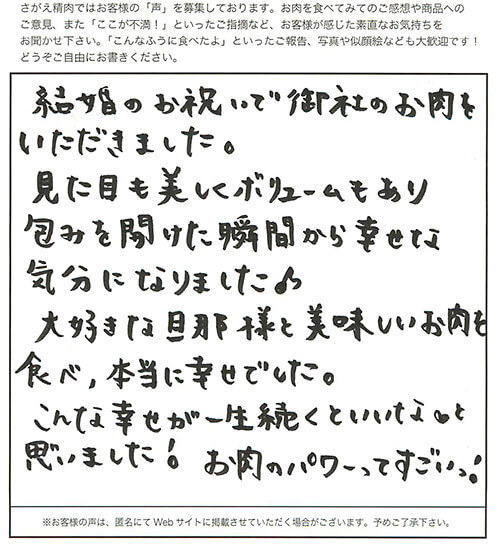 さがえ精肉ではお客様の「声」を募集しております。お肉を食べてみてのご感想や商品への
ご意見、また「ここが不満！」といったご指摘など、お客様が感じた素直なお気持ちを
お聞かせ下さい。「こんなふうに食べたよ」といったご報告、写真や似顔絵なども大歓迎です！
どうぞご自由にお書きください。
結婚のお祝いで御社のお肉を
いただきました。
見た目も美しくボリュームもあり
包みを開けた瞬間から幸せな
気分になりました♪
大好きな旦那様と美味しいお肉を
食べ,本当に幸せでした。
こんな幸せが一生続くといいな。と
思いました！ お肉のパワーってすごいっ！
※お客様の声は、匿名にてWebサイトに掲載させていただく場合がございます。予めご了承下さい。